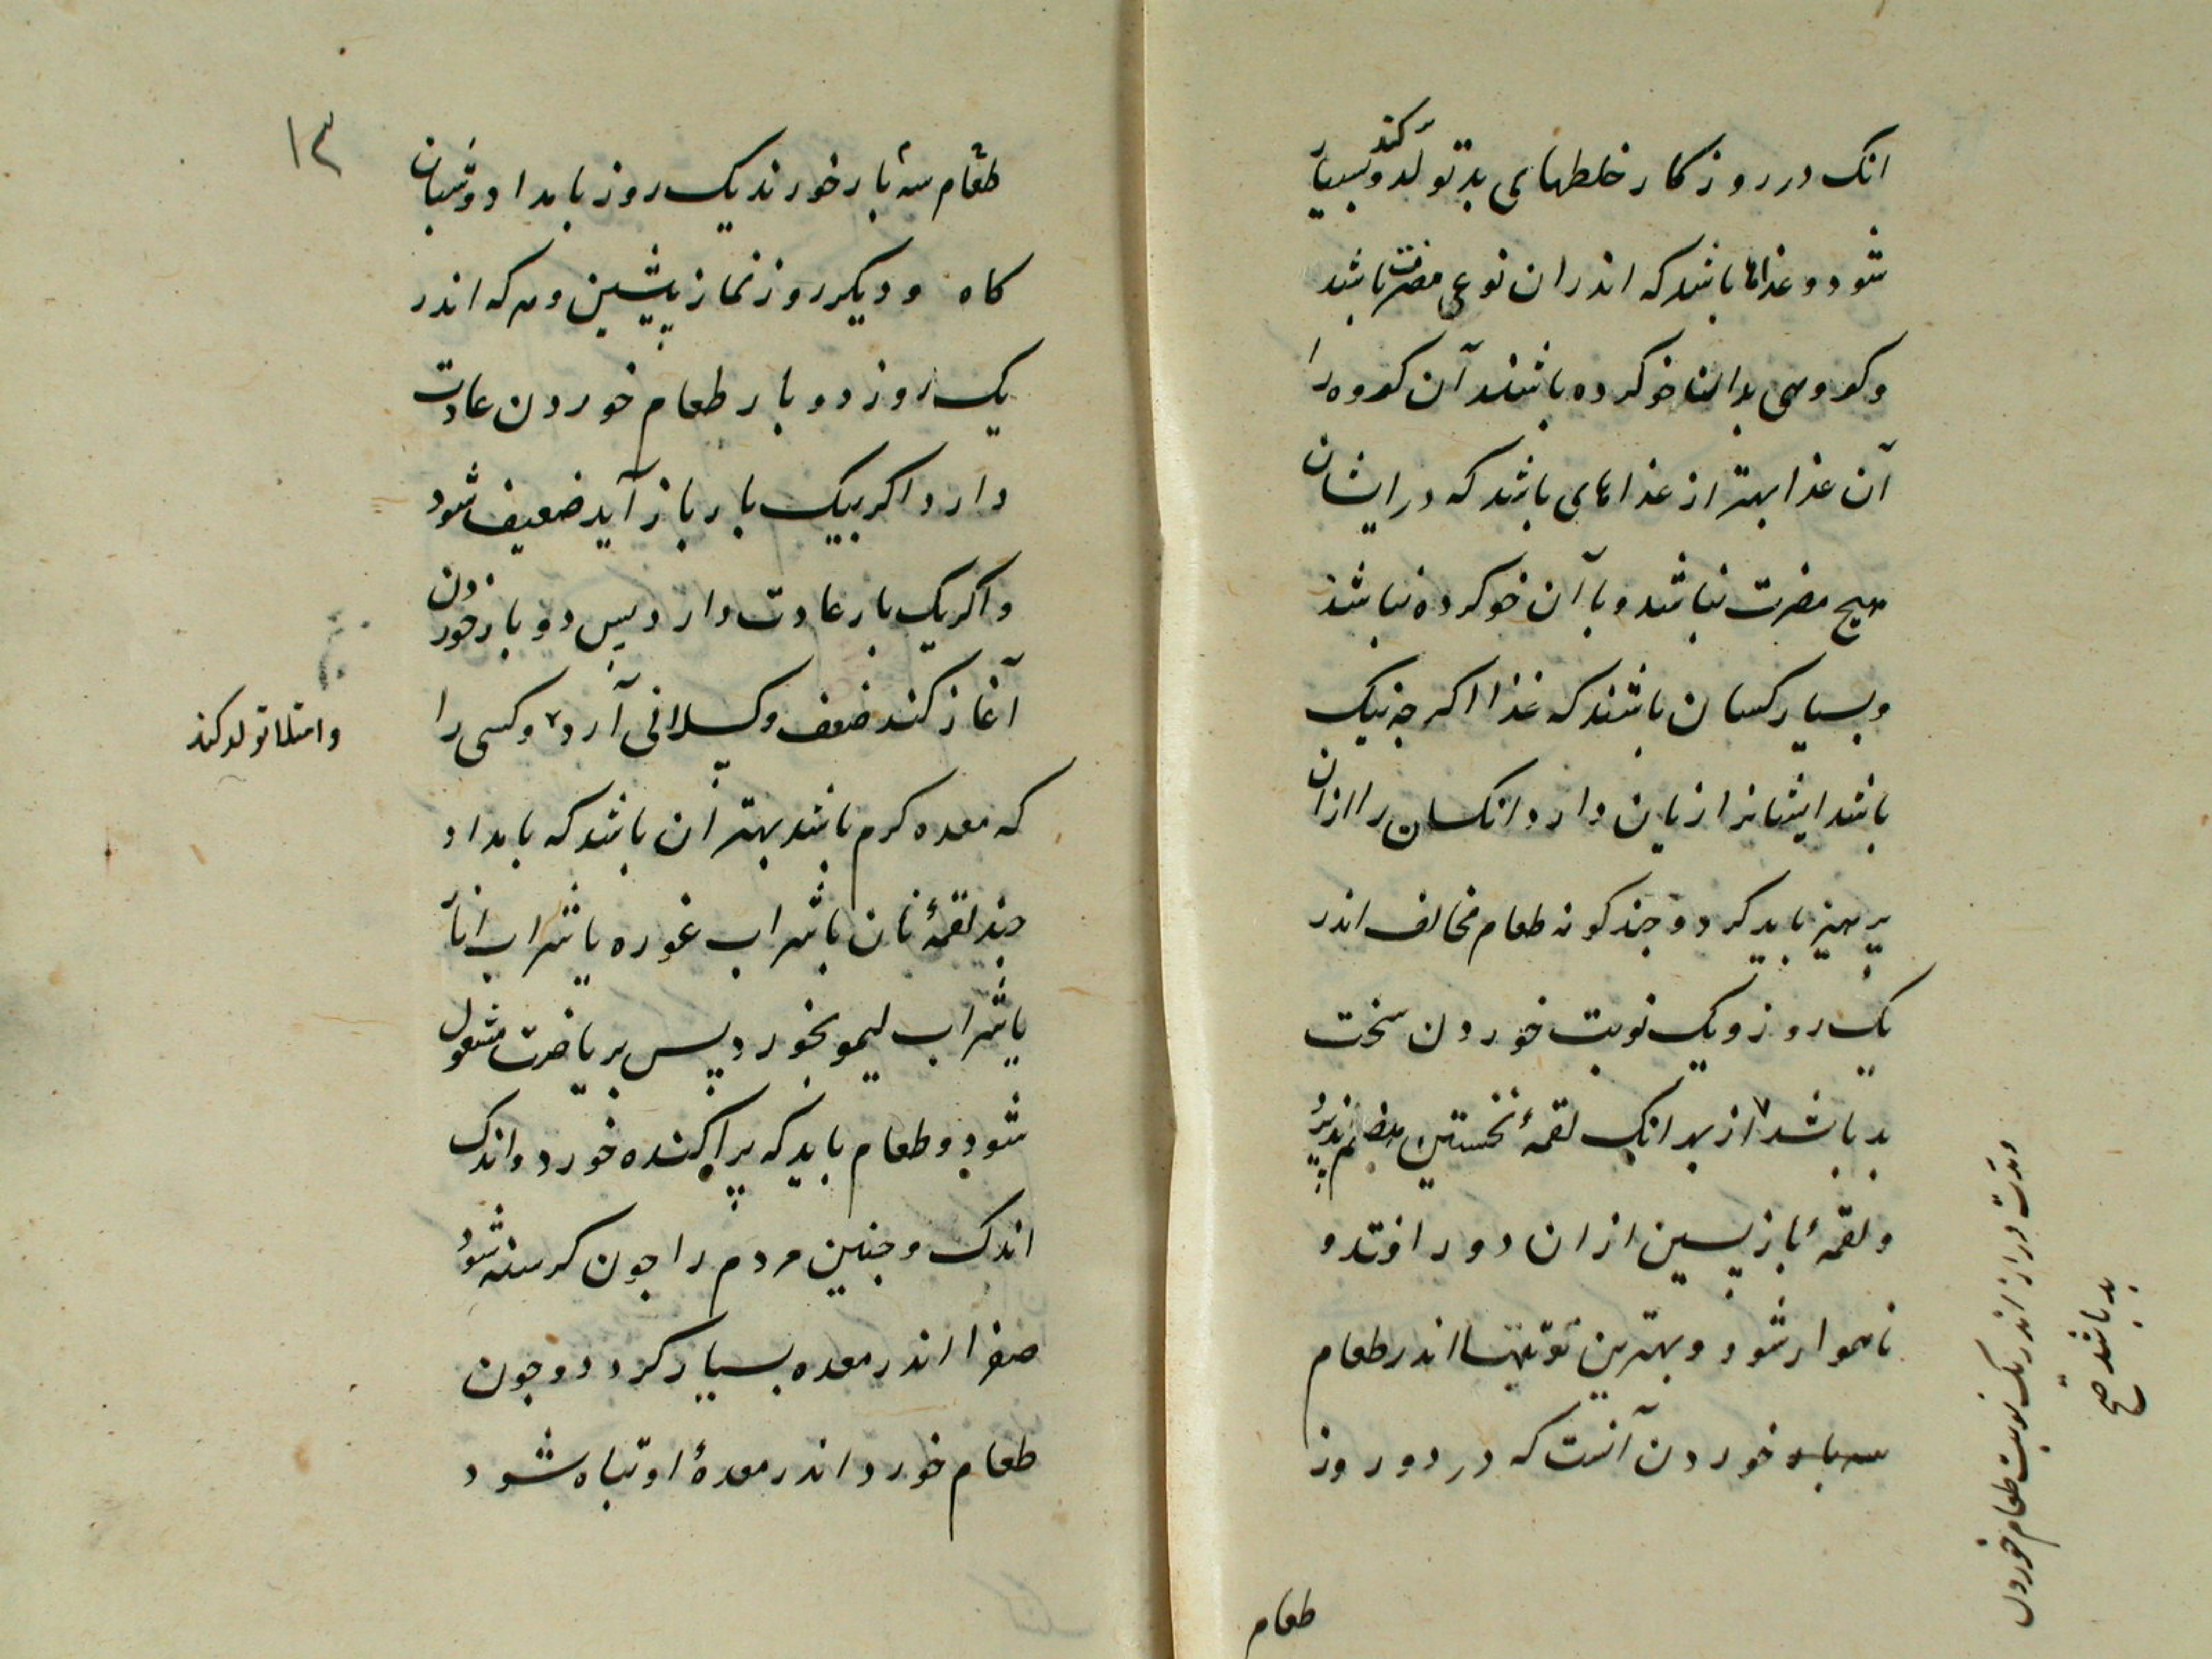 انک در روزکار خلطهای بد تولد کند و بسیار
شود و غذاها باشد که اندران نوعی مضرت باشد
و کروهی بدانها خو کرده باشند آن کروه را
آن غذا بهتر از غذاهای باشد که در ایشان
هیچ مضرت نباشد و با آن خو کرده نباشند
و بسیار کسان باشند که غذا اکر چه نیک
باشد ایشانرا زیان دارد انکسان را ازان
پرهیز باید کرد و جند کونه طعام مخالف اندر
یک روز و یک نوبت خوردن سخت
بد باشد از بهر انک لقمهٔ نخستین هضم پذیرد
و لقمهٔ بازپسین ازان دور افتد و
ناهموار شود و بهترین توقیتها اندر طعام
سه باره خوردن آنست که در دو روز
ومدت دراز اندر یک نوبت طعام خوردن
بد باشد صح
طعام
۱۳
طعام سه بار خورند یک روز بامداد و شبان
کاه و دیکر روز نماز پیشین و هر که اندر
یک روز دو بار طعام خوردن عادت
دارد اکر بیک بار باز آید ضعیف شود
و اکر یک بار عادت دارد پس دو بار خوردن
آغاز کند ضعف و کسلانی آرد و کسی را
وامتلا تولد کند
که معده کرم باشد بهتر آن باشد که بامداد
جند لقمهٔ نان با شراب غوره یا شراب انار
یا شراب لیمو بخورد پس بریاضت مشغول
شود و طعام باید که پراکنده خورد و اندک
اندک و جنین مردم را جون کرسنه شود
صفرا اندر معده بسیار کردد و جون
طعام خورد اندر معدهٔ او تباه شود